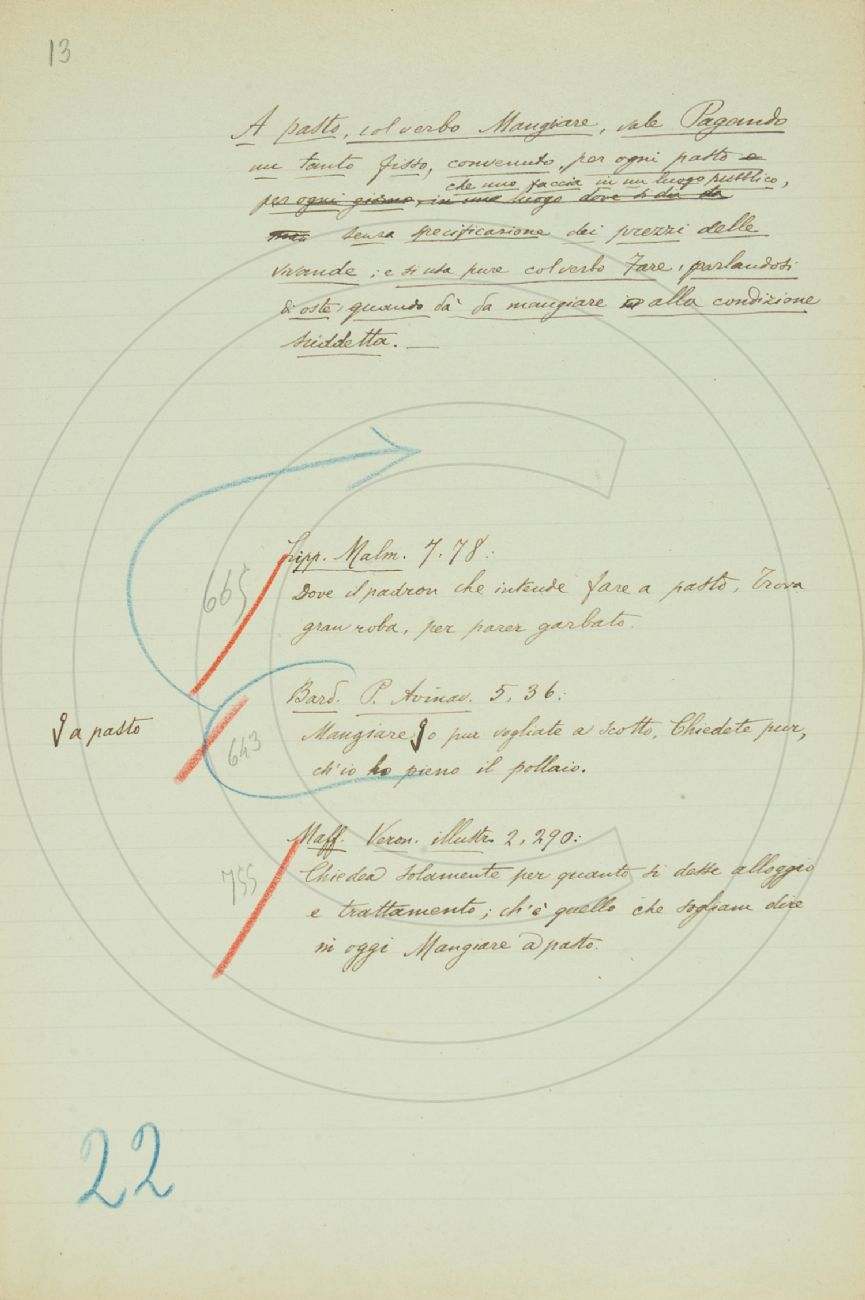 13
A pasto, col verbo Mangiare, vale Pagando
un tanto fisso, convenuto, per ogni pasto e
che uno faccia in un luogo pubblico,
per ogni giorno, in una luogo dove si dia da
senza specificazione dei prezzi delle
vivande; e si usa pure col verbo Fare, parlandosi
di oste, quando dà da mangiare alla condizione
suddetta. —
Lipp. Malm. 7. 78:
665
Dove il padron che intende fare a pasto, Trova
gran roba, per parer garbato.
Bard. P. Avinav. 5, 36:
a pasto
Mangiare o pur vogliate a scotto, Chiedete pur,
643
ch'io ho pieno il pollaio.
Maff. Veron. illustr. 2, 290:
755
Chiedea solamente per quanto si desse alloggio
e trattamento; ch'è quello che sogliam dire
in oggi Mangiare a pasto.
22